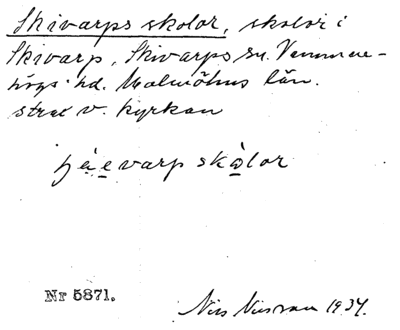 Skivarps skolor, skolor i
Skivarp, Skivarps sn. Vemmen-
högs hd. Malmöhus län.
strax v. kyrkan
varp skò̱lor
Nr 5871.
Nils Nilsson 1934.